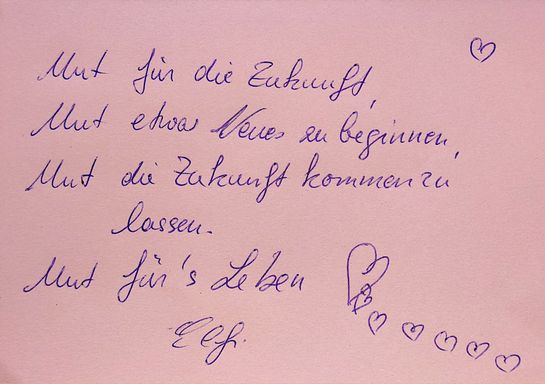 Mut für die Zukunft,
Mut etwas Neues zu beginnen,
Mut die Zukunft kommen zu
lassen.
Mut für's Leben